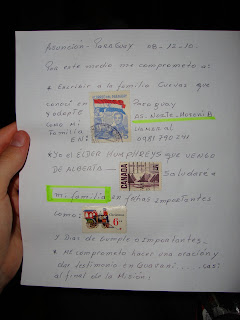 Asunción - Paraguay 08-12-10.
Por este medio me comprometo a:
* Escribir a la familia Cuevas que
conocí en Paraguay
y adopté Av. Norte, Moroni B
como mi
familia Llamar al
EN: 0981 790 24
* Yo el ELDER HUMPHREYS que vengo
DE ALBERTA — Saludaré a
CANADA
mi familia en fechas importantes
como:
6
y Días de cumple o importantes.
* Me comprometo hacer una oración y
dar testimonio en Guaraní ... casi
al final de la Misión.